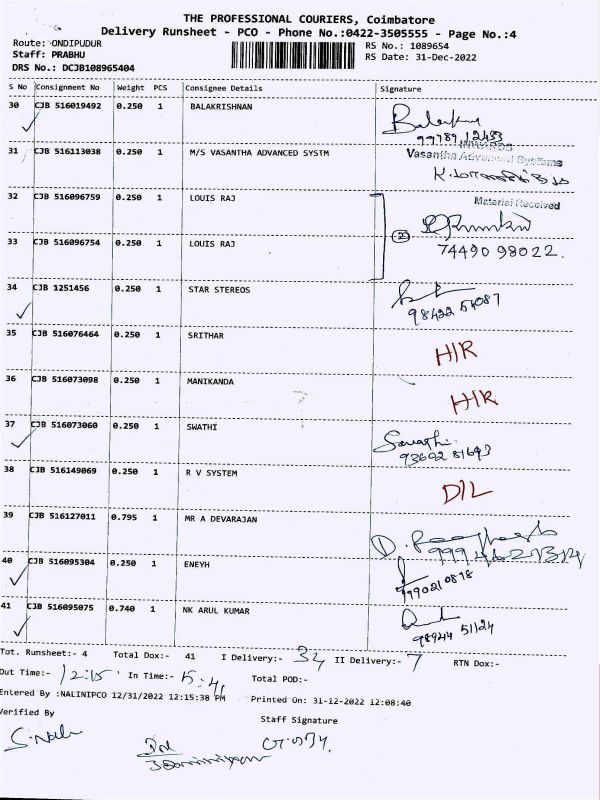 THE PROFESSIONAL COURIERS, Coimbatore
Delivery Runsheet - PCO - Phone No.:0422-3505555 - Page No.:4
Route: ONDIPUDUR
Staff: PRABHU
DRS No.: DCJB108965404
RS No.: 1089654
RS Date: 31-Dec-2022
S No Consignment No Weight PCS Consignee Details Signature
30 CJB 516019492 0.250 1 BALAKRISHNAN
99789 12433
31 CJB 516113038 0.250 1 M/S VASANTHA ADVANCED SYSTM
INWARDS
Vasantha Advanced Systems
Material Received
32 CJB 516096759 0.250 1 LOUIS RAJ
2
33 CJB 516096754 0.250 1 LOUIS RAJ
74490 98022.
34 CJB 1251456 0.250 1 STAR STEREOS
98422 54087
35 CJB 516076464 0.250 1 SRITHAR
HIR
36 CJB 516073098 0.250 1 MANIKANDA
HIR
37 CJB 516073060 0.250 1 SWATHI
Swathi
38 CJB 516149069 0.250 1 R V SYSTEM
D/L
39 CJB 516127011 0.795 1 MR A DEVARAJAN
40 CJB 516095304 0.250 1 ENEYH
41 CJB 516095075 0.740 1 NK ARUL KUMAR
98944 51124
Tot. Runsheet:- 4 Total Dox:- 41 I Delivery:- 34 II Delivery:- 7 RTN Dox:-
Out Time:- 12.15 In Time:- Total POD:-
Entered By :NALINIPCO 12/31/2022 12:15:38 PM Printed On: 31-12-2022 12:08:40
Verified By Staff Signature